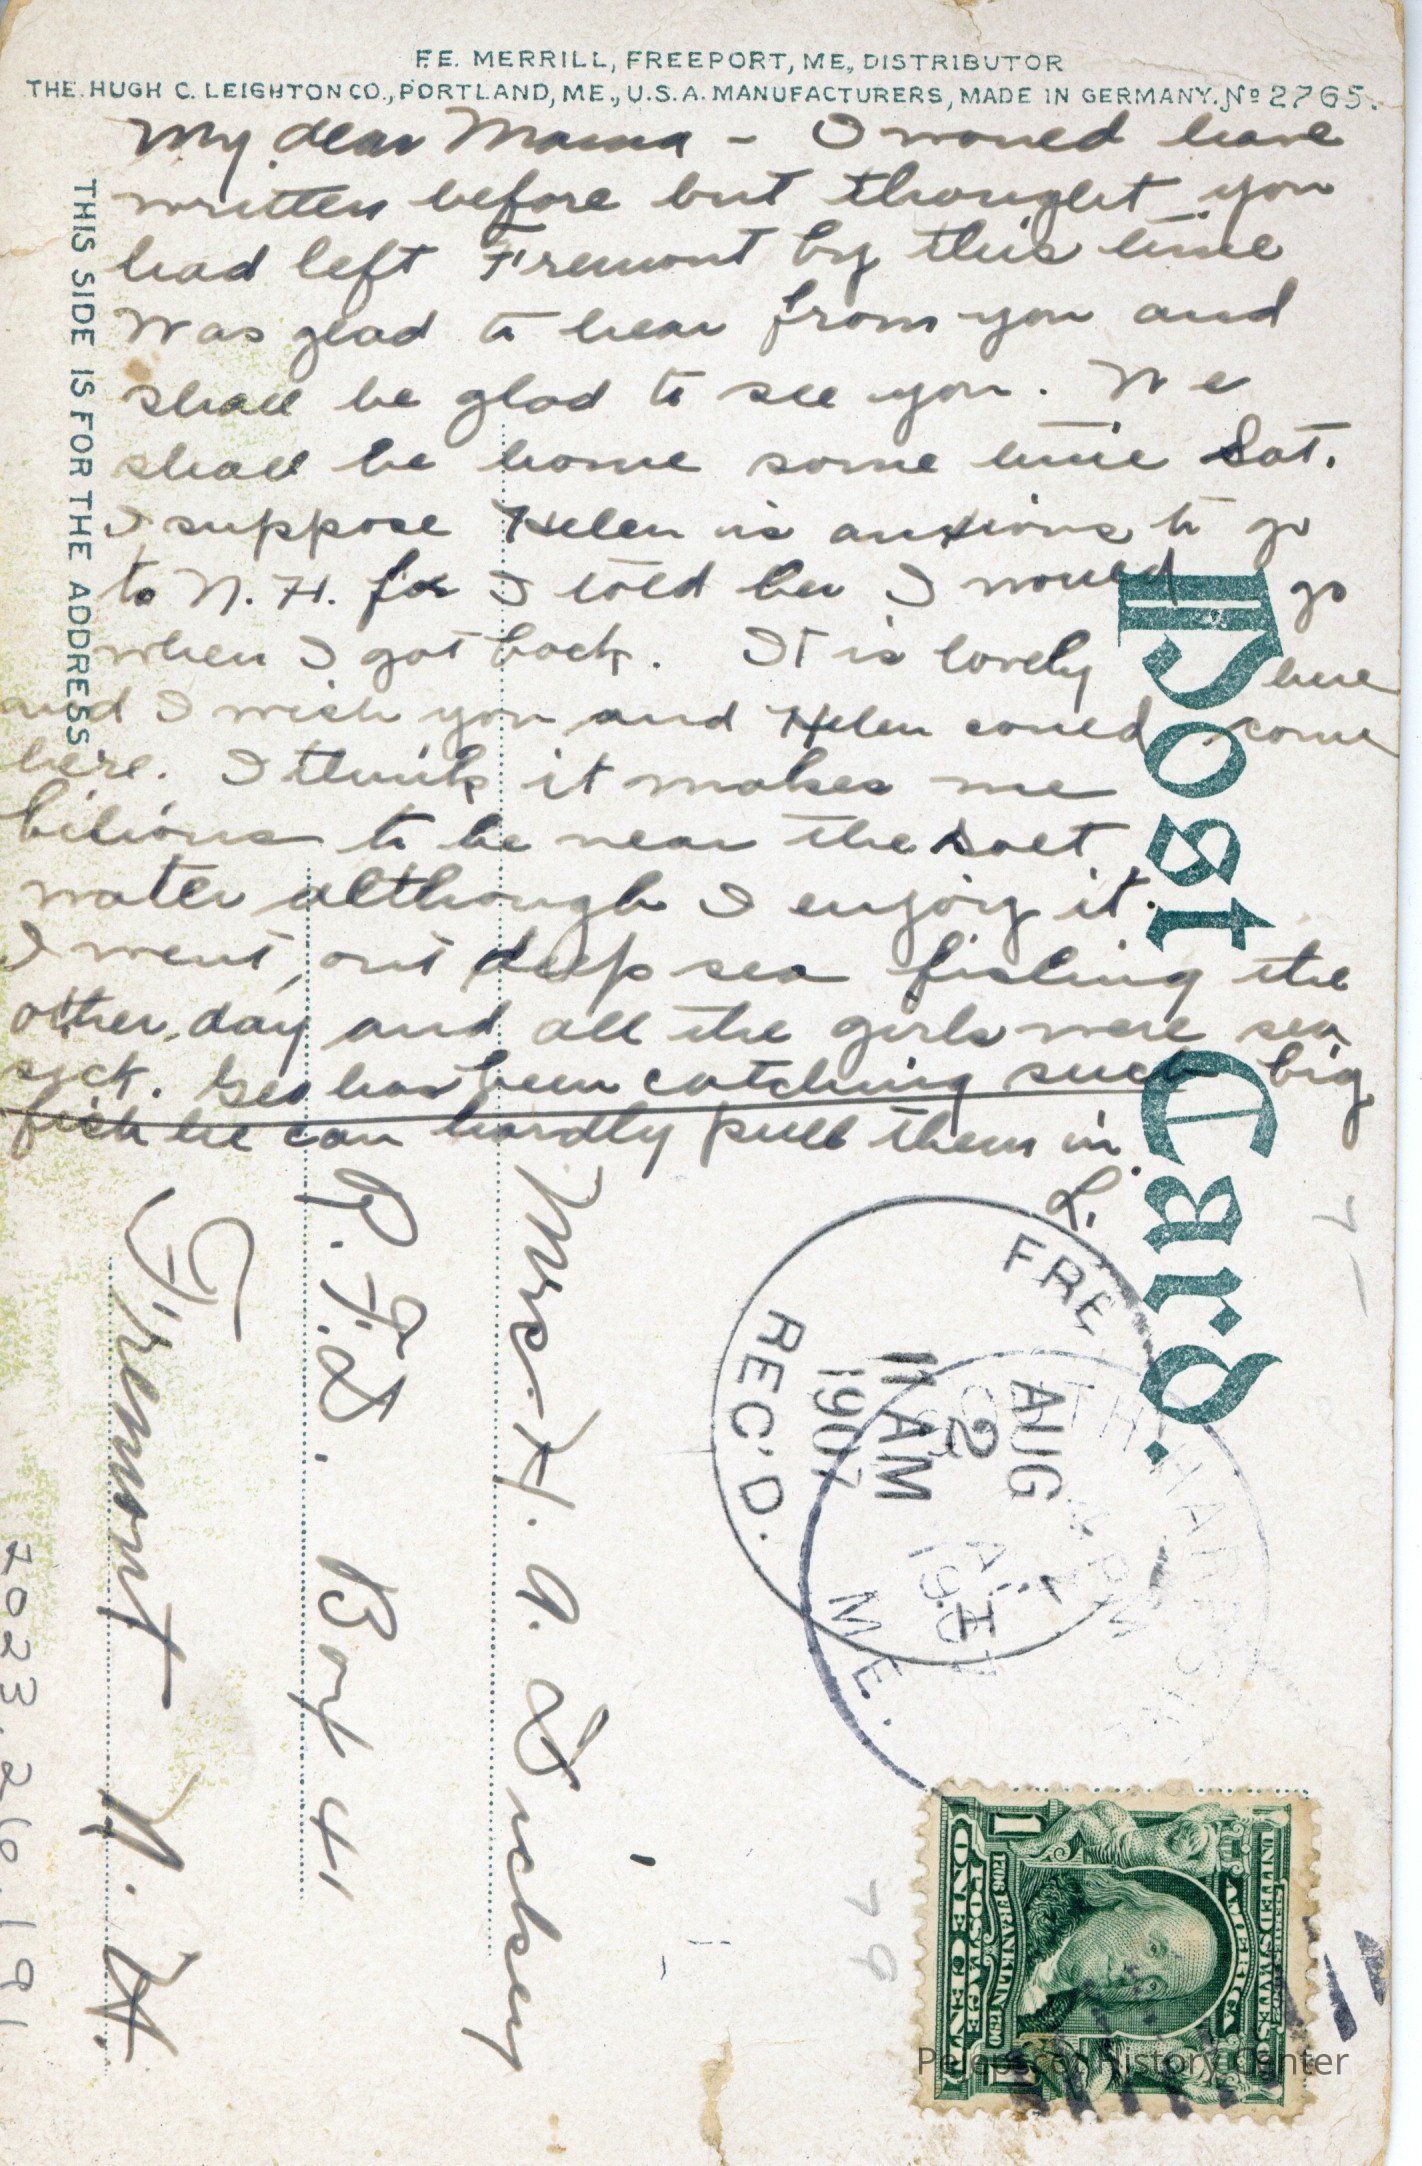 F.E. MERRILL, FREEPORT, ME., DISTRIBUTOR
THE HUGH C. LEIGHTON CO., PORTLAND, ME., U.S.A. MANUFACTURERS, MADE IN GERMANY. No 2765.
THIS SIDE IS FOR THE ADDRESS
Post Card.
My dear Mama - I would have
written before but thought you
had left Fremont by this time
Was glad to hear from you and
shall be glad to see you. We
shall be home some time Sat.
I suppose Helen is anxious to go
to N.H. for I told her I would go
when I got back. It is lovely here
and I wish you and Helen could come
here. I think it makes me
bilious to be near the salt
water although I enjoy it.
I went out deep sea fishing the
other day and all the girls were sea
sick. Geo has been catching such big
fish he can hardly pull them in.
L.
Mrs. H. A. Dickey
R. F. D. Box 41
Fremont
N. H.
FRE
AUG
2
11 AM
1907
REC'D.
ME.
UNITED STATES OF AMERICA
1706 FRANKLIN 1790
1 ONE CENT 1
POSTAGE
79
2023.26.191
Pejepscot History Center